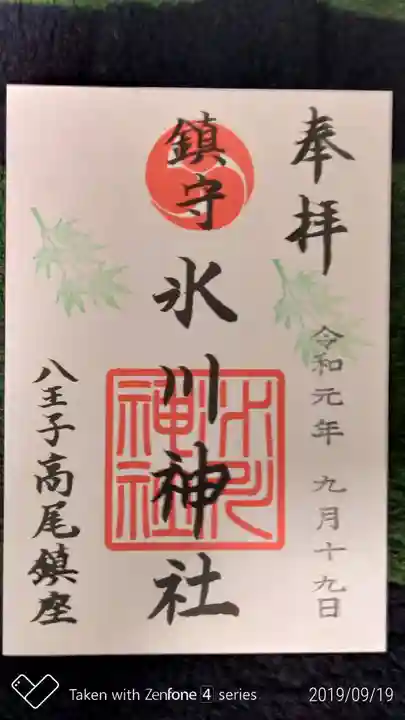 奉拝
令和元年 九月十九日
鎮守
氷川神社
氷川神社
八王子高尾鎮座
Taken with Zenfone 4 series
2019/09/19